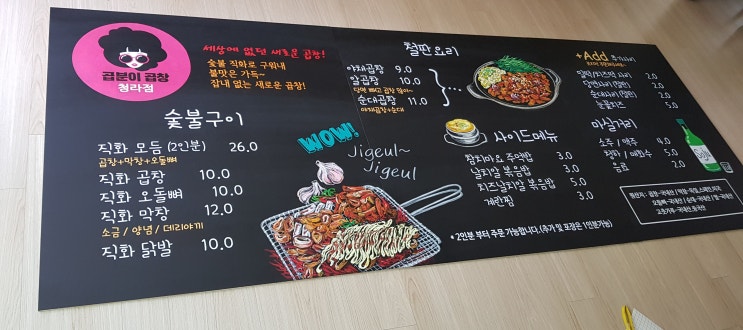 곱분이 곱창
청라점
세상에 없던 새로운 곱창!
숯불 직화로 구워내
불맛은 가득~
잡내 없는 새로운 곱창!
숯불구이
직화 모듬 (2인분) 26.0
곱창+막창+오돌뼈
직화 곱창 10.0
직화 오돌뼈 10.0
직화 막창 12.0
소금 / 양념 / 데리야끼
직화 닭발 10.0
WOW!
Jigeul~
Jigeul
철판요리
야채곱창 9.0
알곱창 10.0
당면 빼고 곱창 많이~
순대곱창 11.0
야채곱창+순대
사이드메뉴
참치마요 주먹밥 3.0
날치알 볶음밥 3.0
치즈날치알 볶음밥 5.0
계란찜 3.0
* 2인분 부터 주문 가능합니다. (추가 및 포장은 1인분가능)
+Add 추가사리
2.0
당면사리(철판) 2.0
순대사리(철판) 2.0
눈꽃치즈 5.0
마실거리
소주 / 맥주 4.0
청하 / 매화수 5.0
음료 2.0